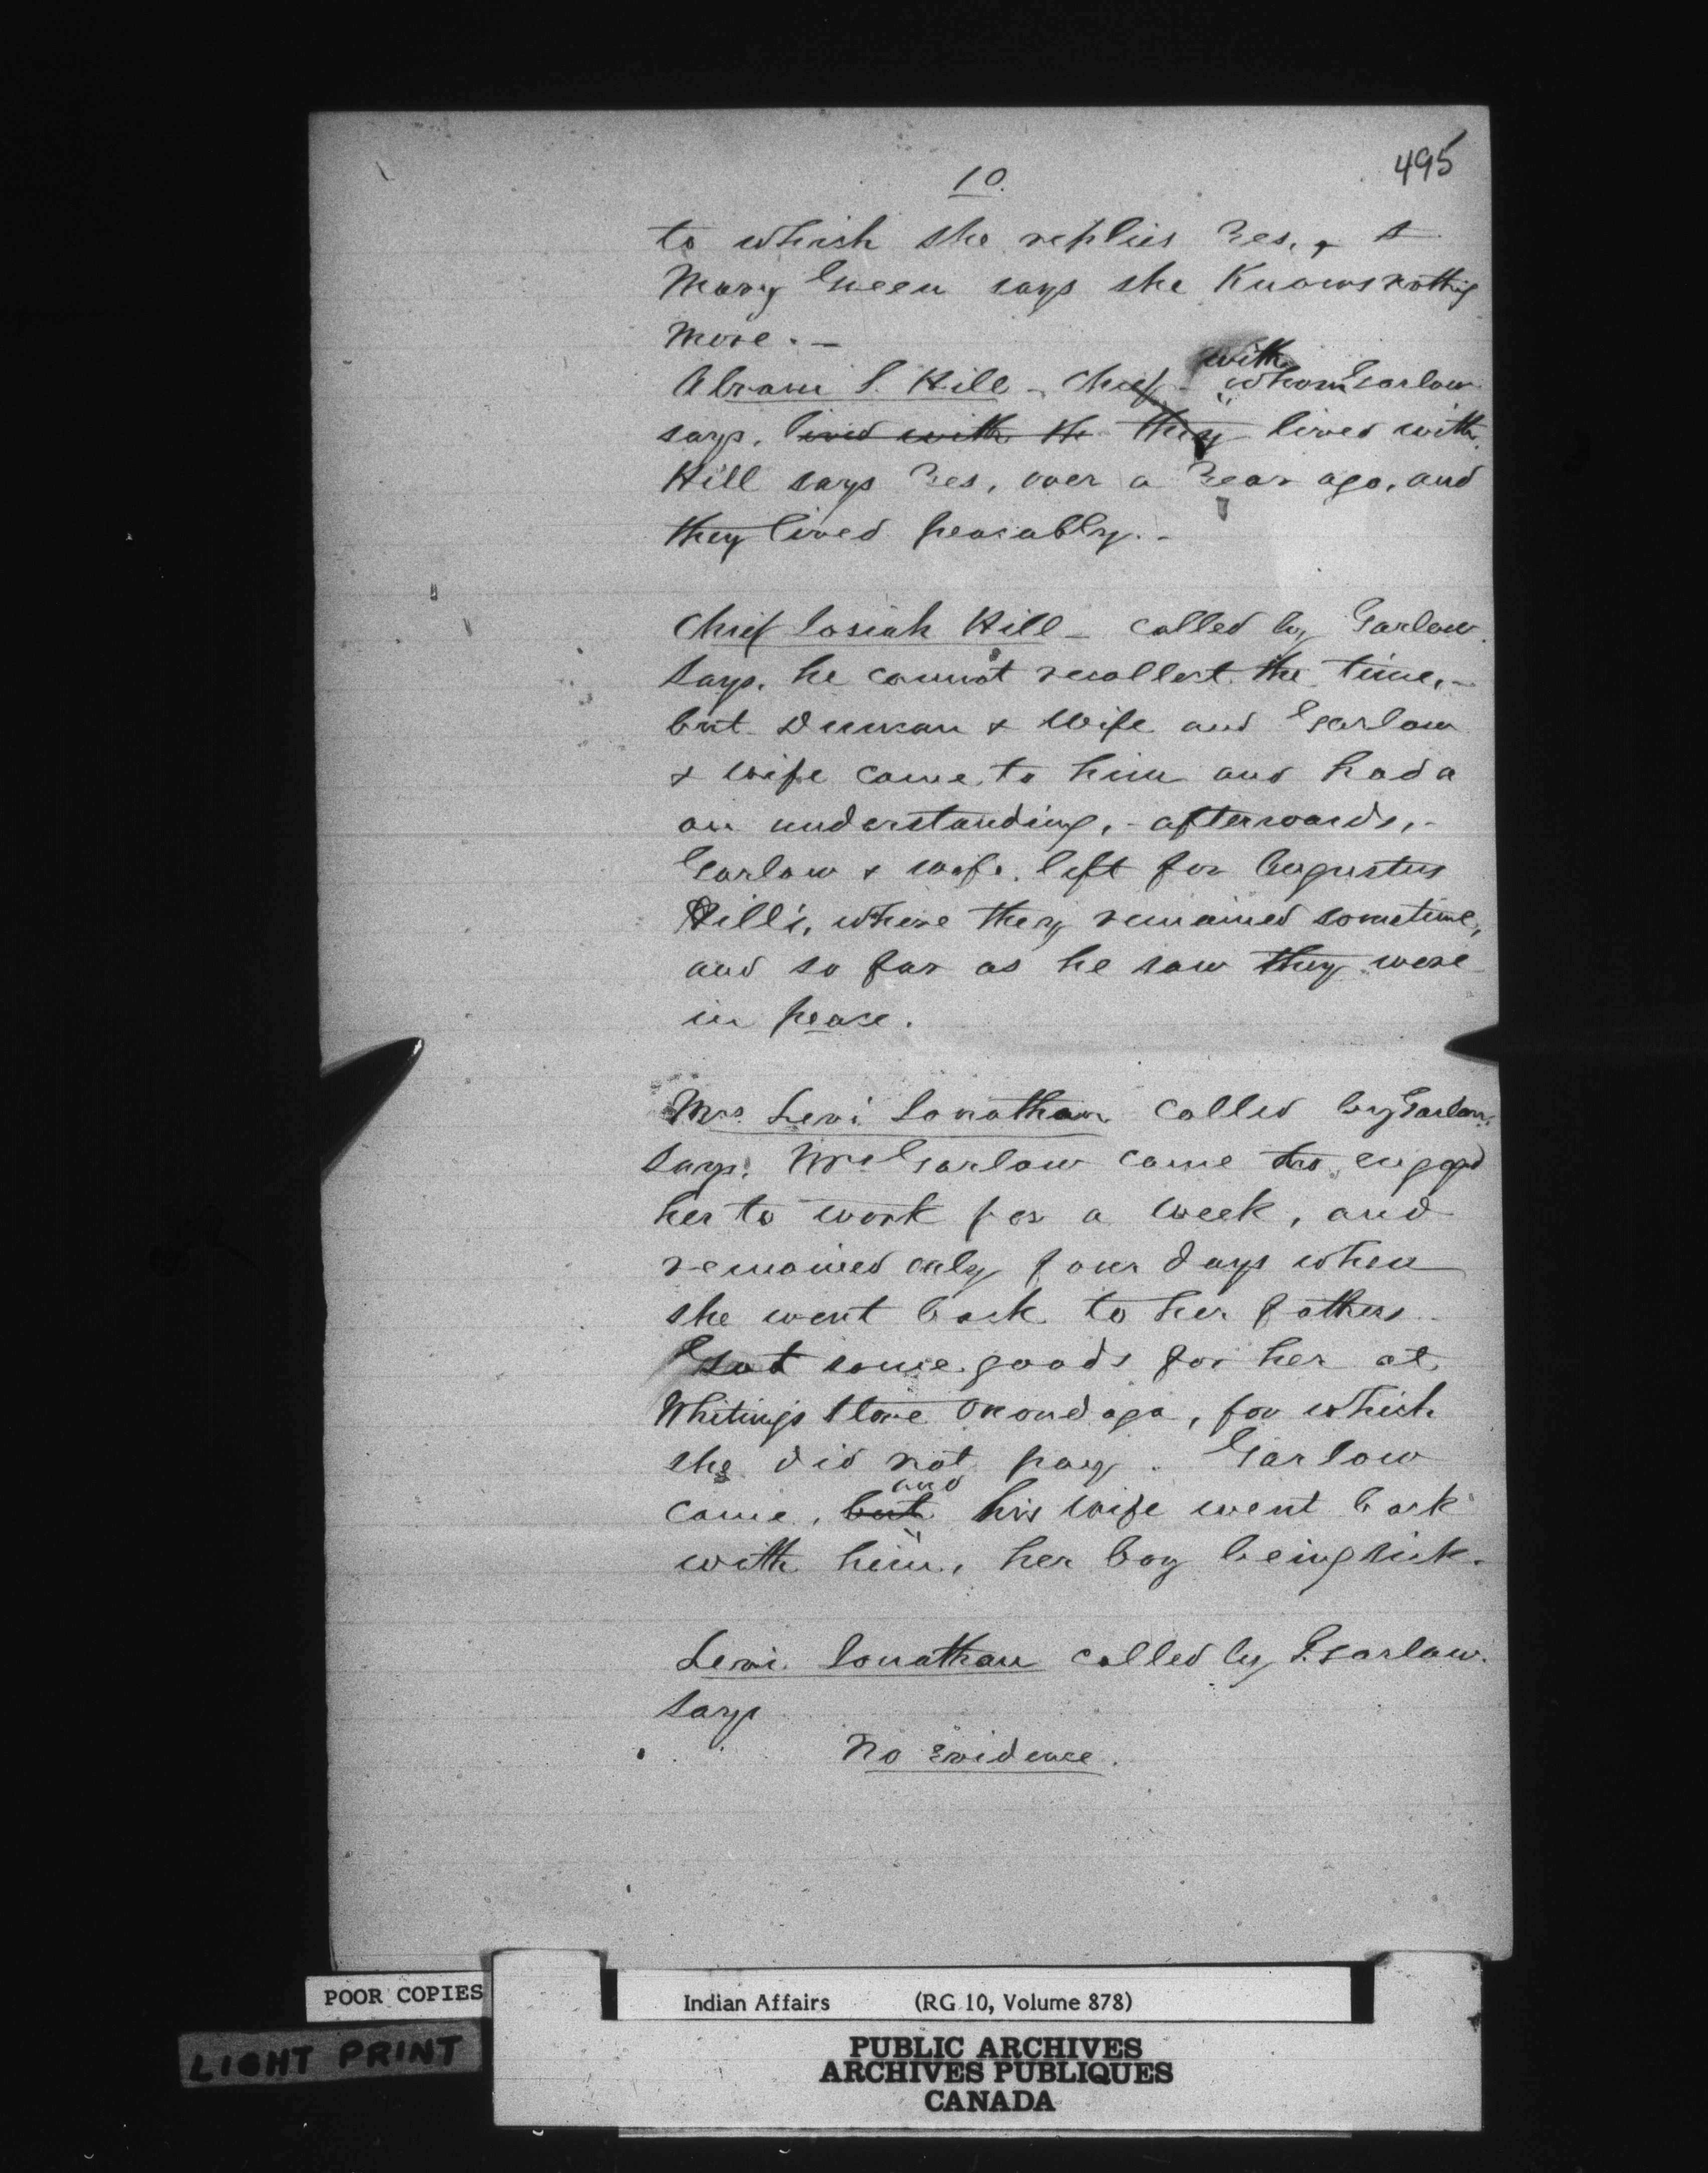 495
10.
to which she replies Yes, +
Mary Green says she Knows nothing
more. -
Abram S. Hill - Chief - with whom Garlow
says, lived with He they lived with.
Hill says Yes, over a Year ago, and
they lived peacably. -
Chief Josiah Hill - called by Garlow.
Says, he cannot recollect the time, -
but Duncan & Wife and Garlow
& wife came to him and had a
an understanding, - afterwards, -
Garlow & wife left for Augustus
Hill's, where they remained sometime,
and so far as he saw they were
in peace.
Mrs. Levi Jonathan called by Garlow.
Says, Mrs Garlow came
her to work for a week, and
remained only four days when
she went back to her fathers.
Got some goods for her at
Whiting's Store Onondaga, for which
she did not pay. Garlow
came, but and his wife went back
with him, her boy being sick.
Levi Jonathan called by Garlow.
Says
No Evidence.
POOR COPIES
LIGHT PRINT
Indian Affairs (RG 10, Volume 878)
PUBLIC ARCHIVES
ARCHIVES PUBLIQUES
CANADA